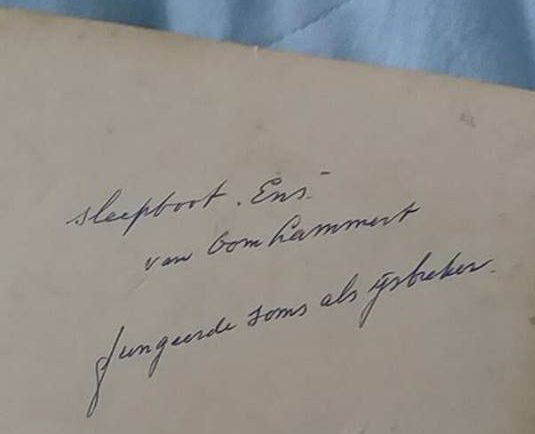 sleepboot. Ens.
van Oom Lammert
fungeerde soms als ijsbreker.